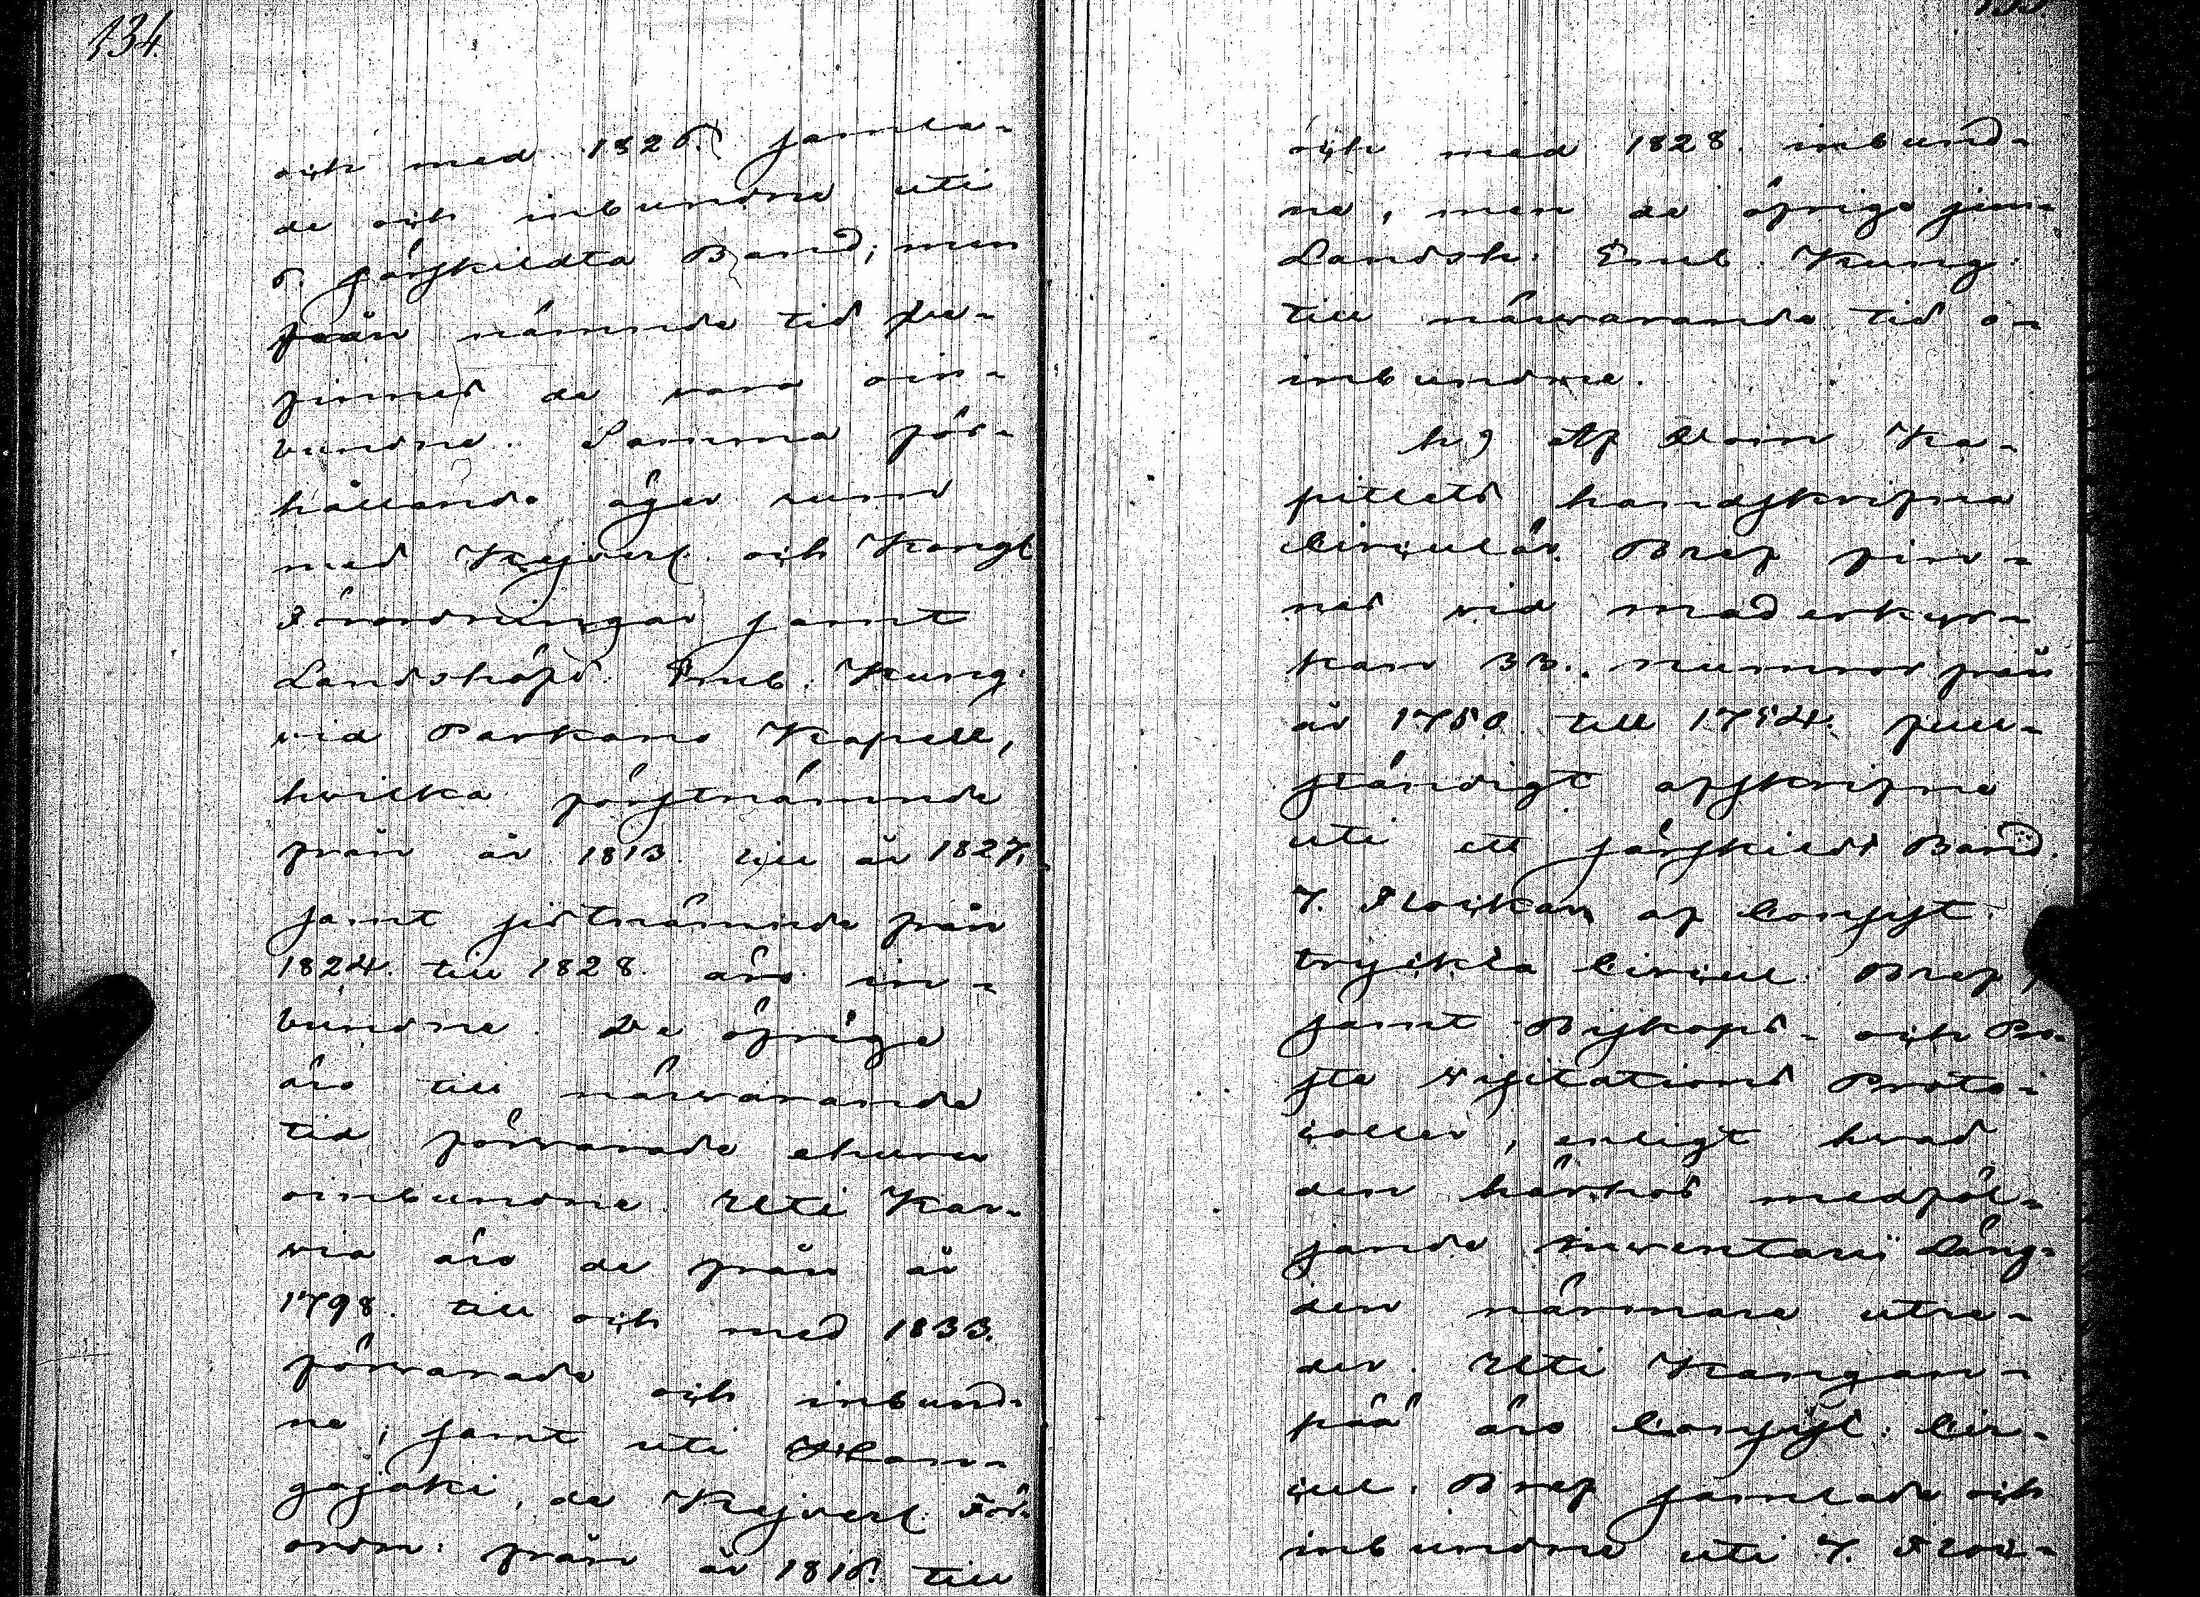 134.
och med 1826. samla-
de och inbundne uti
6. särskildta Band; men
från nämnde tid be-
finnes de vara oin-
bundne. Samma för-
hållande äger rum
med Kejserl. och Kongl.
Förordningar samt
Landshöfd. Emb. Kung.
vid Parkano Kapell,
hvilka förstnämnde
från år 1813. till år 1827.
samt sistnämnde från
1824. till 1828. äro in-
bundne. De öfrige
äro till närvarande
tid förvarade ehuru
oinbundne. Uti Kar-
via äro de från år
1798. till och med 1833.
förvarade och inbund-
ne, samt uti Kan-
gasjaki, de Kejserl. För-
ordn: från år 1816. till
och med 1828. inbund-
ne, men de öfrige jem-
Landsh: Emb. Kung.
till närvarande tid o-
inbundne.
h) Af Dom Ka-
pitlets handskrifna
Circulär Bref fin-
nes vid moderkyr-
kan 33. nummror från
år 1750. till 1754. full-
ständigt afskrifne
uti ett särskildt Band.
7. Flockar af Consist.
tryckta Circul. Bref,
samt Biskops- och Pro-
ste Visitations Proto-
coller, enligt hvad
den härhos medföl-
jande Inventarii läng-
den närmare utre-
der. Uti Kangan-
pää äro Consist: Cir-
cul. Bref samlade och
inbundne uti 7. Floc-